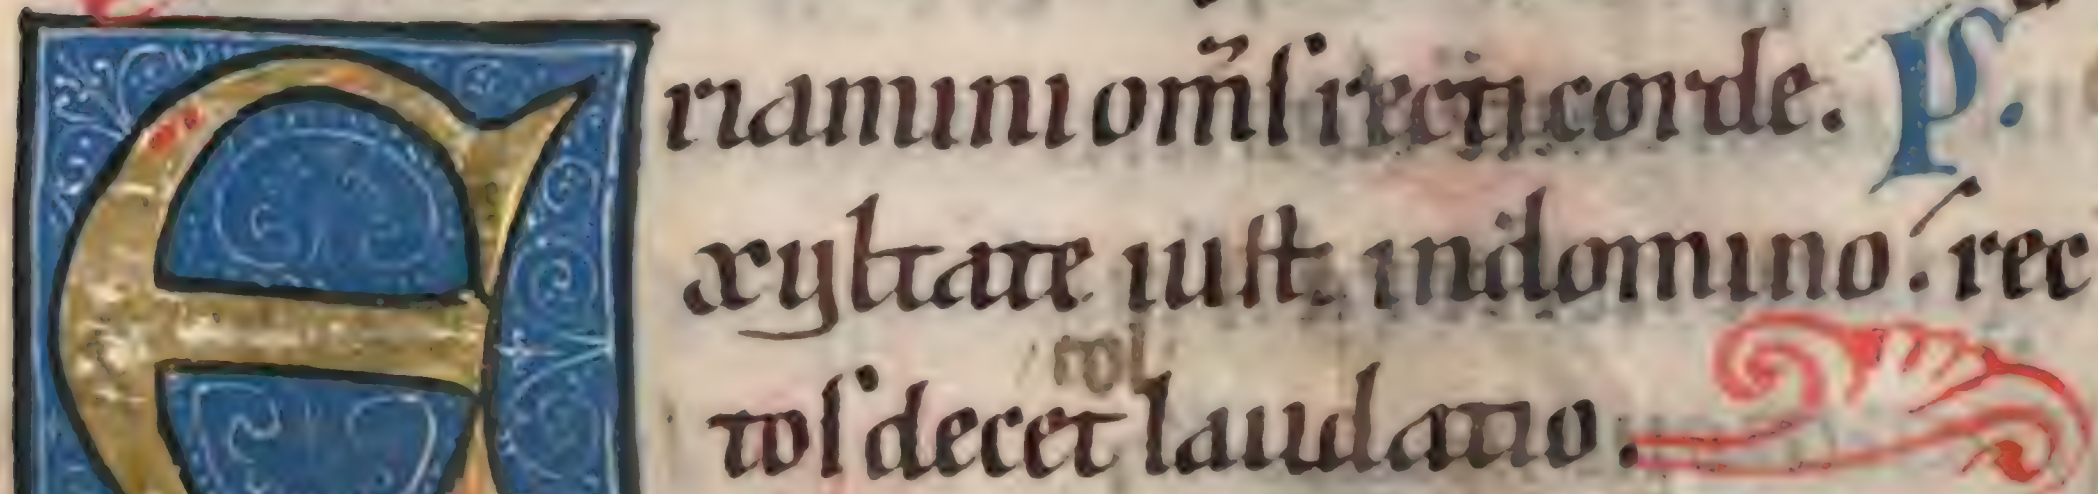 riamini om̄ſ recti corde. Pſ.
Exultate iuſti in domino: rec
toſ decet laudatio.